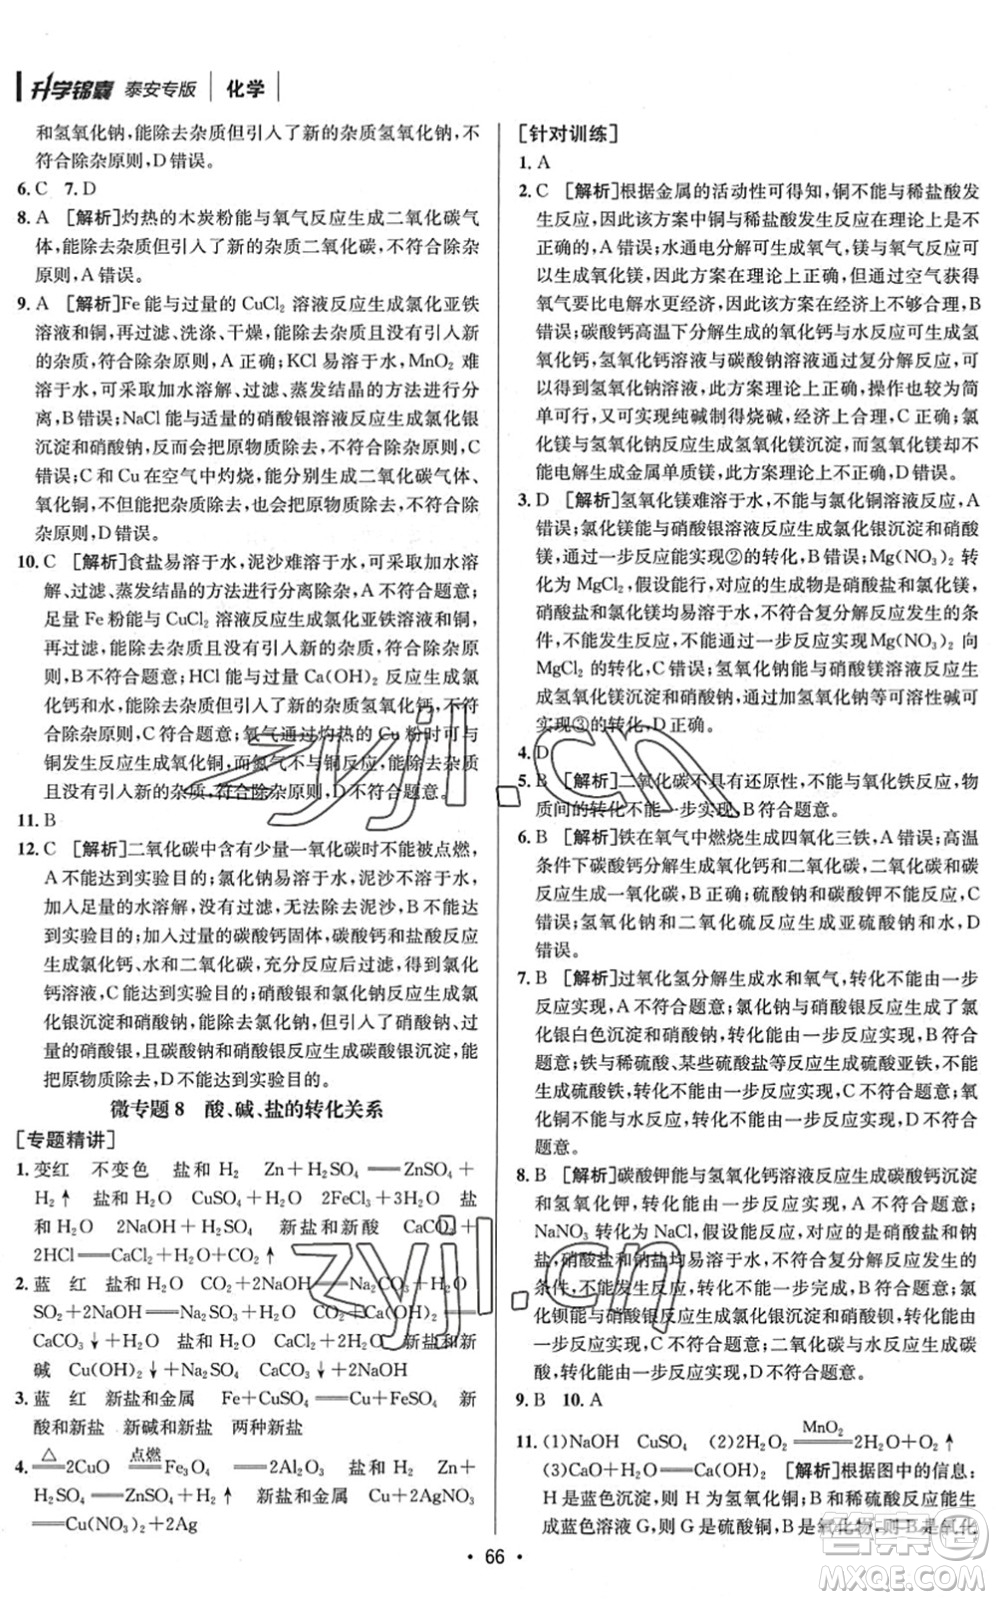 升学锦囊 泰安专版 | 化学 |
和氢氧化钠,能除去杂质但引入了新的杂质氢氧化钠,不
符合除杂原则,D错误。
6. C 7. D
8. A [解析]灼热的木炭粉能与氧气反应生成二氧化碳气
体,能除去杂质但引入了新的杂质二氧化碳,不符合除杂
原则,A错误。
9. A [解析]Fe能与过量的CuCl₂溶液反应生成氯化亚铁
溶液和铜,再过滤、洗涤、干燥,能除去杂质且没有引入新
的杂质,符合除杂原则,A正确;KCl易溶于水,MnO₂难
溶于水,可采取加水溶解、过滤、蒸发结晶的方法进行分
离,B错误;NaCl能与适量的硝酸银溶液反应生成氯化银
沉淀和硝酸钠,反而会把原物质除去,不符合除杂原则,C
错误;C和Cu在空气中灼烧,能分别生成二氧化碳气体、
氧化铜,不但能把杂质除去,也会把原物质除去,不符合除
杂原则,D错误。
10. C [解析]食盐易溶于水,泥沙难溶于水,可采取加水溶
解、过滤、蒸发结晶的方法进行分离除杂,A不符合题意;
足量Fe粉能与CuCl₂溶液反应生成氯化亚铁溶液和铜,
再过滤,能除去杂质且没有引入新的杂质,符合除杂原
则,B不符合题意;HCl能与过量Ca(OH)₂反应生成氯
化钙和水,能除去杂质但引入了新的杂质氢氧化钙,不符
合除杂原则,C符合题意;氧气通过灼热的Cu粉时可与
铜发生反应生成氧化铜,而氮气不与铜反应,能除去杂
质,符合除杂原则,D不符合题意。
11. B
12. C [解析]二氧化碳中含有少量一氧化碳时不能被点燃,
A不能达到实验目的;氯化钠易溶于水,泥沙不溶于水,
加入足量的水溶解,没有过滤,无法除去泥沙,B不能达
到实验目的;加入过量的碳酸钙固体,碳酸钙和盐酸反应
生成氯化钙、水和二氧化碳,充分反应后过滤,得到氯化
钙溶液,C能达到实验目的;氯化钠与硝酸银反应生成氯
化银沉淀和硝酸钠,能除去氯化钠,但引入了硝酸钠、过
量的硝酸银,且碳酸钠和硝酸银反应生成碳酸银沉淀,能
把原物质除去,D不能达到实验目的。
微专题8 酸、碱、盐的转化关系
[专题精讲]
1. 变红 不变色 盐和H₂ Zn+H₂SO₄══ZnSO₄+
H₂↑ 盐和H₂O CuSO₄+H₂O 2FeCl₃+3H₂O 盐
和H₂O 2NaOH+H₂SO₄ 新盐和新酸 CaCO₃+
2HCl══CaCl₂+H₂O+CO₂↑
2. 蓝 红 盐和H₂O CO₂+2NaOH══Na₂CO₃+H₂O
SO₂+2NaOH══Na₂SO₃+H₂O CO₂+Ca(OH)₂══
CaCO₃↓+H₂O 盐和H₂O CaCl₂+2H₂O 新盐和新
碱 Cu(OH)₂↓+Na₂SO₄ CaCO₃↓+2NaOH
3. 蓝 红 新盐和金属 Fe+CuSO₄══Cu+FeSO₄ 新
酸和新盐 新碱和新盐 两种新盐
4. △══2CuO 点燃══Fe₃O₄ ══2Al₂O₃ 盐和H₂ Zn+
H₂SO₄══ZnSO₄+H₂↑ 新盐和新金属 Cu+2AgNO₃
══Cu(NO₃)₂+2Ag
[针对训练]
1. A
2. C [解析]根据金属的活动性可得知,铜不能与稀盐酸发
生反应,因此该方案中铜与稀盐酸发生反应在理论上是不
正确的,A错误;水通电分解可生成氧气,镁与氧气反应可
以生成氧化镁,因此方案在理论上正确,但通过空气获得
氧气要比电解水更经济,因此在经济上不够合理,B
错误;碳酸钙高温下分解生成的氧化钙与水反应可生成氢
氧化钙,氢氧化钙溶液与碳酸钠溶液通过复分解反应,可
以得到氢氧化钠溶液,此方案理论上正确,操作也较为简
单可行,又可实现纯碱制得烧碱,经济上合理,C正确;氯
化镁与氢氧化钠反应生成氢氧化镁沉淀,而氢氧化镁却不
能电解生成金属单质镁,此方案理论上不正确,D错误。
3. D [解析]氢氧化镁难溶于水,不能与氯化铜溶液反应,A
错误;氯化镁能与硝酸银溶液反应生成氯化银沉淀和硝酸
镁,通过一步反应能实现②的转化,B错误;Mg(NO₃)₂转
化为MgCl₂,假设能行,对应的生成物是硝酸盐和氯化镁,
硝酸盐和氯化镁均易溶于水,不符合复分解反应发生的条
件,不能发生反应,不能通过一步反应实现Mg(NO₃)₂向
MgCl₂的转化,C错误;氢氧化钠能与硝酸镁溶液反应生
成氢氧化镁沉淀和硝酸钠,加入氢氧化钠等可溶性碱可
实现③的转化,D正确。
4. D
5. B [解析]二氧化碳不具有还原性,不能与氧化铁反应,物
质间的转化不能一步实现,B符合题意。
6. B [解析]铁在氧气中燃烧生成四氧化三铁,A错误;高温
条件下碳酸钙分解生成氧化钙和二氧化碳,二氧化碳和碳
反应生成一氧化碳,B正确;硫酸钠和碳酸钾不能反应,C
错误;氢氧化钠和二氧化硫反应生成亚硫酸钠和水,D
错误。
7. B [解析]过氧化氢分解生成水和氧气,转化能由一步
反应实现,A不符合题意;氯化钠与硝酸银反应生成了氯
化银白色沉淀和硝酸钠,转化能由一步反应实现,B符合
题意;铁与稀硫酸、某些硫酸盐等反应生成硫酸亚铁,不能
生成硫酸铁,转化不能由一步反应实现,C不符合题意;氧
化铁不能与水反应,转化不能由一步反应实现,D不符合
题意。
8. B [解析]碳酸钾能与氢氧化钙溶液反应生成碳酸钙沉淀
和氢氧化钾,能一步反应实现,A不符合题意;
NaNO₃转化为NaCl,假设能反应,对应的是硝酸盐和钠
盐,硝酸盐和钠盐均易溶于水,不符合复分解反应发生的
条件,不能发生反应,转化不能一步完成,B符合题意;氯
化钡能与硝酸银反应生成氯化银沉淀和硝酸钡,转化能由
一步反应实现,C不符合题意;二氧化碳与水反应生成碳
酸,转化能由一步反应实现,D不符合题意。
9. B 10. A
11. (1)NaOH CuSO₄ (2)2H₂O₂ MnO₂══2H₂O+O₂↑
(3)CaO+H₂O══Ca(OH)₂ [解析]根据图中的信息:
H是蓝色沉淀,则H为氢氧化铜;B和硫酸反应能生
成蓝色溶液G,则G是硫酸铜,B是氧化物,则B是氧化
• 66 •
zyjl.cn
zyjl.cn
答案圈
MXQE.COM